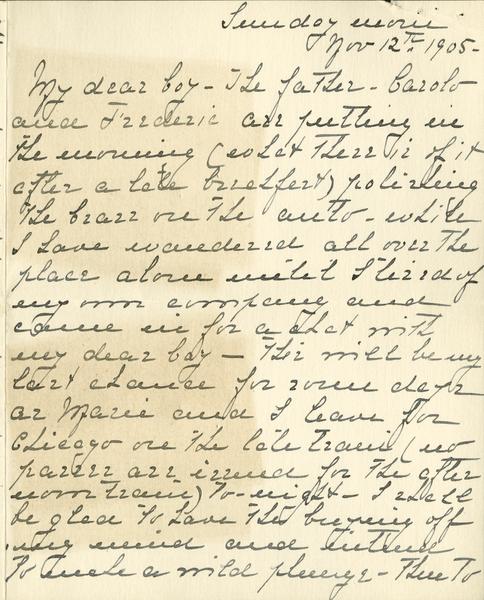 Sunday morn
Nov 12th 1905-
My dear boy - The father - Carolo
and Frederic are putting in
the morning (what there is of it
after a late breakfast) polishing
the brass on the auto - while
I have wandered all over the
place alone until I tired of
my own company and
came in for a chat with
my dear boy - This will be my
last chance for some days
as Marie and I leave for
Chicago on the late train (no
passes are issued for the after
noon train) to-night - I shall
be glad to have the buying off
my mind and intend
to make a wild plunge - then to